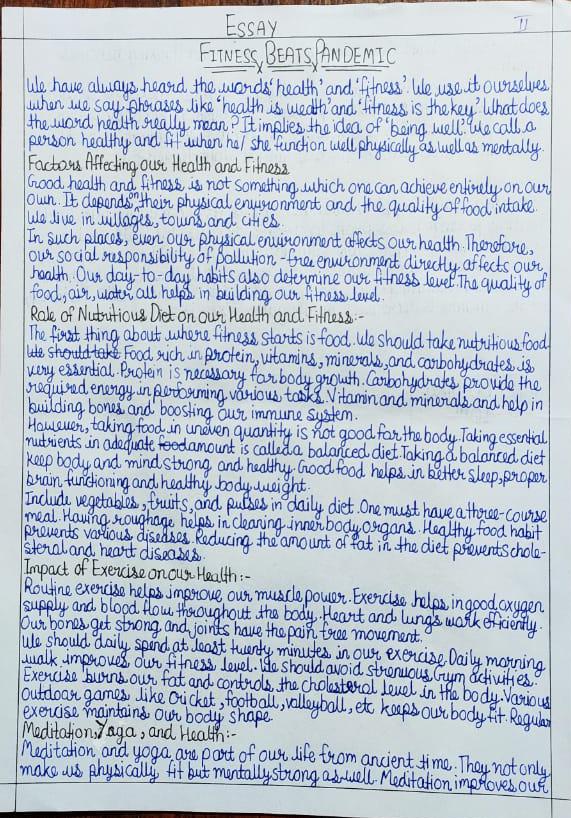 ESSAY
11
FITNESS BEATS PANDEMIC
We have always heard the words 'health' and 'fitness'. We use it ourselves
when we say phrases like 'health is wealth' and 'fitness is the key'. What does
the word health really mean? It implies the idea of 'being well'. We call a
person healthy and fit when he/she function well physically as well as mentally.
Factors Affecting our Health and Fitness
Good health and fitness is not something which one can achieve entirely on our
own. It depends on their physical environment and the quality of food intake.
We live in villages, towns, and cities.
In such places, even our physical environment affects our health. Therefore,
our social responsibility of pollution-free environment directly affects our
health. Our day-to-day habits also determine our fitness level. The quality of
food, air, water all helps in building our fitness level.
Role of Nutritious Diet on our Health and Fitness:-
The first thing about where fitness starts is food. We should take nutritious food.
We should take Food rich in protein, vitamins, minerals, and carbohydrates is
very essential. Protein is necessary for body growth. Carbohydrates provide the
required energy in performing various tasks. Vitamin and minerals and help in
building bones and boosting our immune system.
However, taking food in uneven quantity is not good for the body. Taking essential
nutrients in adequate food amount is called a balanced diet. Taking a balanced diet
keep body and mind strong and healthy. Good food helps in better sleep, proper
brain functioning and healthy body weight.
Include vegetables, fruits, and pulses in daily diet. One must have a three-course
meal. Having roughage helps in cleaning inner body organs. Healthy food habit
prevents various diseases. Reducing the amount of fat in the diet prevents chole-
steral and heart diseases.
Impact of Exercise on our Health:-
Routine exercise helps improve our muscle power. Exercise helps in good oxygen
supply and blood flow throughout the body. Heart and lungs work efficiently.
Our bones get strong and joints have the pain free movement.
We should daily spend at least twenty minutes in our exercise. Daily morning
walk improves our fitness level. We should avoid strenuous Gym activities.
Exercise burns our fat and controls the cholesterol level in the body. Various
outdoor games like cricket, football, valleyball, etc keeps our body fit. Regular
exercise maintains our body shape.
Meditation, Yoga, and Health:-
Meditation and yoga are part of our life from ancient time. They not only
make us physically fit but mentally strong as well. Meditation improves our